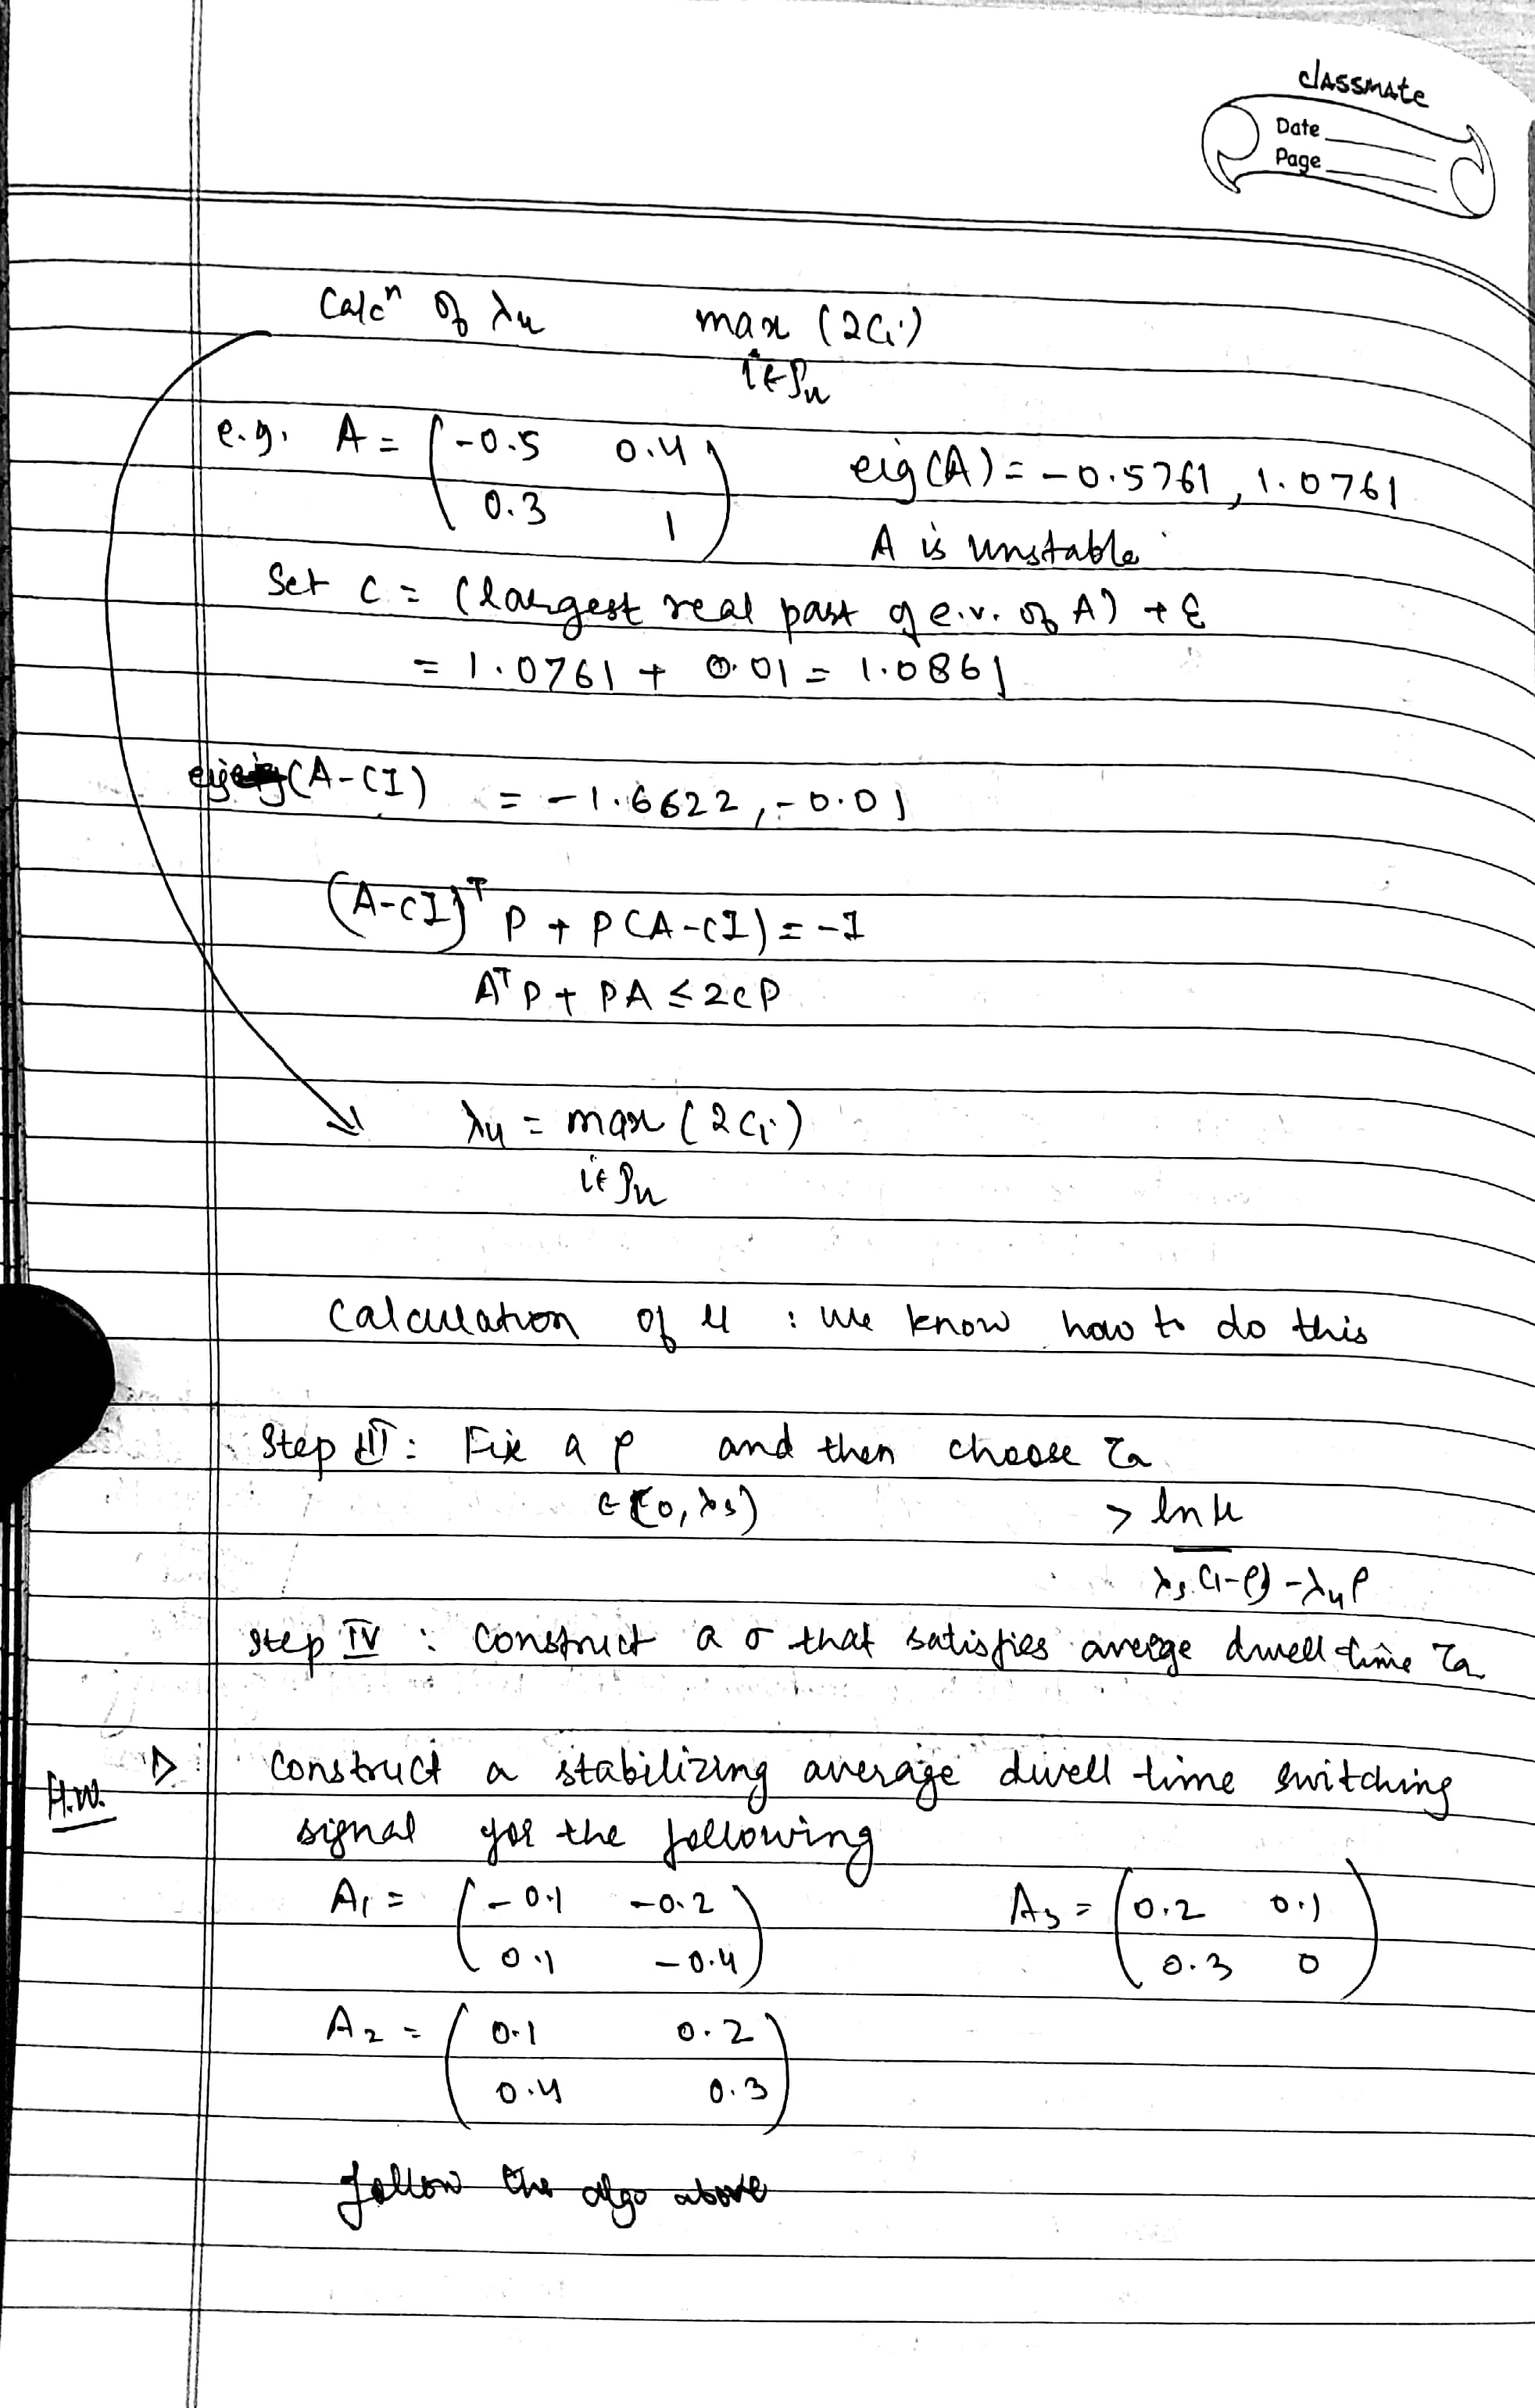 classmate
Date
Page
Calcⁿ of λu max (2Ci)
i∈Pu
e.g. A = (-0.5 0.4
0.3 1) eig(A) = -0.5761, 1.0761
A is unstable
Set C = (largest real part of e.v. of A) + ε
= 1.0761 + 0.01 = 1.0861
eig(A-CI) = -1.6622, -0.01
(A-CI)ᵀ P + P(A-CI) = -I
AᵀP + PA ≤ 2CP
λu = max (2Ci)
i∈Pu
Calculation of μ : We know how to do this
Step III : Fix a ρ and then choose τa
∈ (0, λs) > ln μ
λs(1-ρ) - λuρ
Step IV : Construct a σ that satisfies averge dwell time τa
H.W. 1) Construct a stabilizing average dwell time switching
signal for the following
A1 = (-0.1 -0.2
0.1 -0.4) A3 = (0.2 0.1
0.3 0)
A2 = (0.1 0.2
0.4 0.3)
follow the algo above